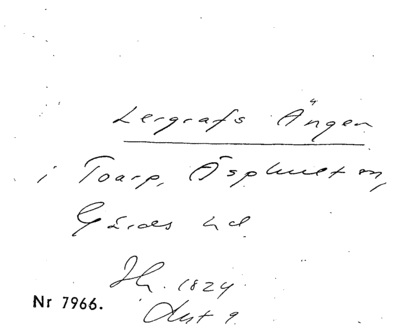 Lergrafs Ängen
i Toarp, Äsphult sn,
Gärds hd
Sk. 1824
Akt 9
Nr 7966.